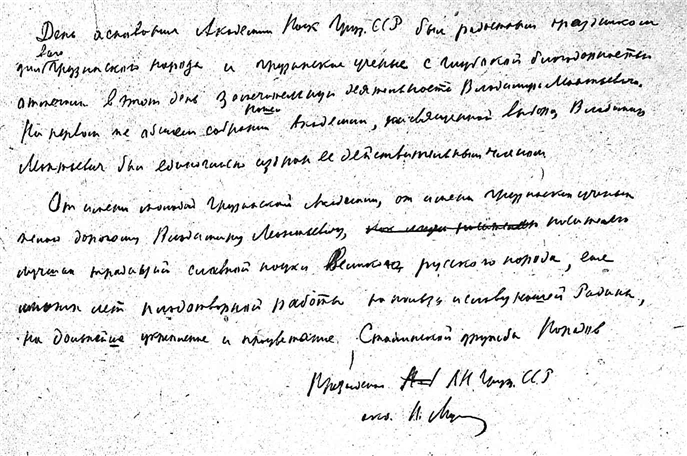 День основания Академии Наук Груз. ССР был радостным праздником
всего
для Грузинского народа и грузинские ученые с глубокой благодарностью
отметили в этот день замечательную деятельность Владимира Леонтьевича.
На первом же общем собрании нашей Академии, посвященном выбору Владимир
Леонтьевич был единогласно избран ее действительным членом
От имени молодой Грузинской Академии, от имени грузинских ученых
желаю дорогому Владимиру Леонтьевичу, носителю
лучших традиций славной науки Великого русского народа, еще
многих лет плодотворной работы на пользу нашей Родины,
на дальнейшее укрепление и процветание Сталинской дружбы Народов
Президент АН Груз. ССР
акад. Н. Мус